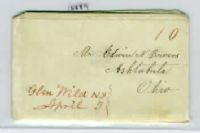 10
Mr Edwin N Bowers
Ashtabula
Ohio
Glen Wild NY
April 3